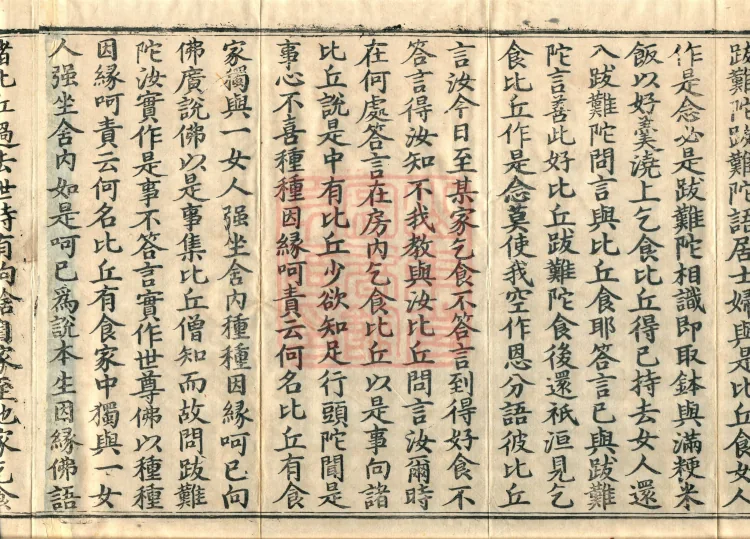 跋難陀跋難陀語居士婦與是比丘食女人
作是念必是跋難陀相識即取鉢與滿粳米
飯以好羹澆上乞食比丘得已持去女人還
入跋難陀問言與比丘食耶答言已與跋難
陀言善此好比丘跋難陀食後還祇洹見乞
食比丘作是念莫使我空作恩分語彼比丘
言汝今日至某家乞食不答言到得好食不
答言得汝知不我教與汝比丘問言汝爾時
在何處答言在房內乞食比丘以是事向諸
比丘說是中有比丘少欲知足行頭陀聞是
事心不喜種種因緣呵責云何名比丘有食
家獨與一女人强坐舍內種種因緣呵已向
佛廣說佛以是事集比丘僧知而故問跋難
陀汝實作是事不答言實作世尊佛以種種
因緣呵責云何名比丘有食家中獨與一女
人强坐舍內如是呵已爲說本生因緣佛語
諸比丘過去世時有